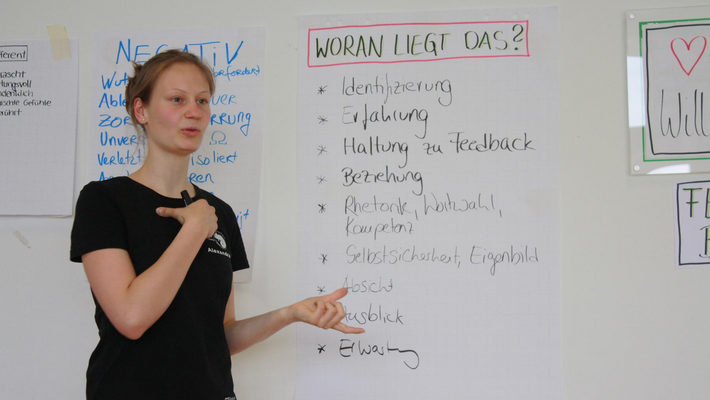 fferent
ascht
tungsvoll
derslich
ischte Gefühle
rührt
NEGATIV
Wut
Able
ZOR
RRUNG
Unver
Verletzt
isoliert
Alexandra
WORAN LIEGT DAS?
* Identifizierung
* Erfahrung
* Haltung zu Feedback
* Beziehung
* Rhetorik, Wortwahl,
Kompetenz
* Selbstsicherheit, Eigenbild
* Absicht
Ausblick
* Erwartung
Will
FE